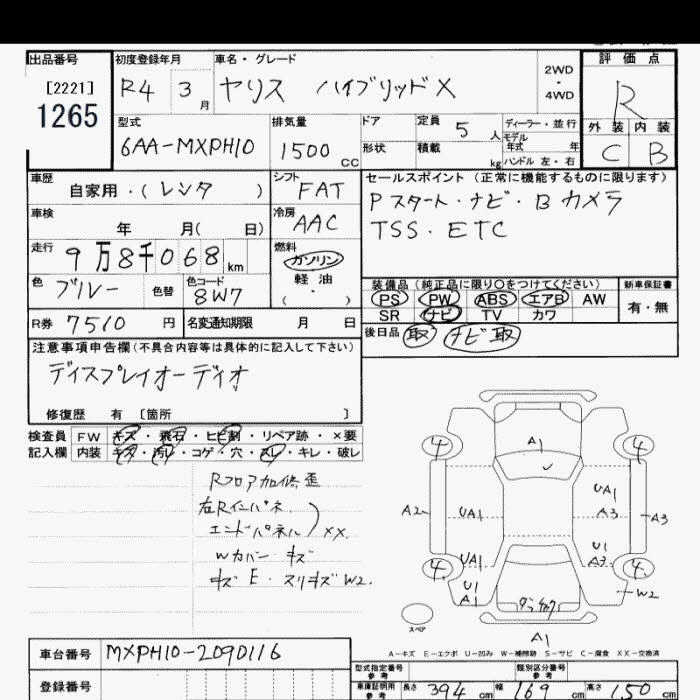 出品番号
[2221]
1265
初度登録年月
R4 3月
車名・グレード
ヤリス ハイブリッドX
2WD
・
4WD
評価点
R
外装 内装
C B
型式
6AA-MXPH10
排気量
1500 CC
ドア
形状
定員 5 人
積載 kg
ディーラー・並行
モデル
年式 年
ハンドル 左・右
車歴
自家用・(レンタ )
シフト
FAT
セールスポイント(正常に機能するものに限ります)
Pスタート・ナビ・Bカメラ
TSS・ETC
車検
年 月( 日)
冷房
AAC
走行
9万8千068km
燃料
ガソリン
軽油
( ・ )
色
ブルー
色替
色コード
8W7
装備品(純正品に限り○をつけてください)
新車保証書
PS PW ABS エアB AW
SR ナビ TV カワ
有・無
R券 7510 円
名変通知期限 月 日
後日品 取 ナビ取
注意事項申告欄(不具合内容等は具体的に記入して下さい)
ディスプレイオーディオ
修復歴 有 [箇所 ]
検査員
記入欄
FW キズ・飛石・ヒビ割・リペア跡・×要
内装 キズ・汚レ・コゲ・穴・スレ・キレ・破レ
Rフロア加修歪
右Rインパネ
エンドパネル XX.
Wカバー キズ
キズ E・スリキズ W2.
A1
4 4
A2 UA1 UA1 A3 A3
UA1 U1 A3
4 4
U1 A1
W2
スペア
A1
A-キズ E-エクボ U-凹み W-補修跡 S-サビ C-腐食 XX-交換済
車台番号 MXPH10-2090116
登録番号
型式指定番号
参考
類別区分番号
参考
車庫証明用
参考
長さ 394 cm 幅 169 cm 高さ 150 cm